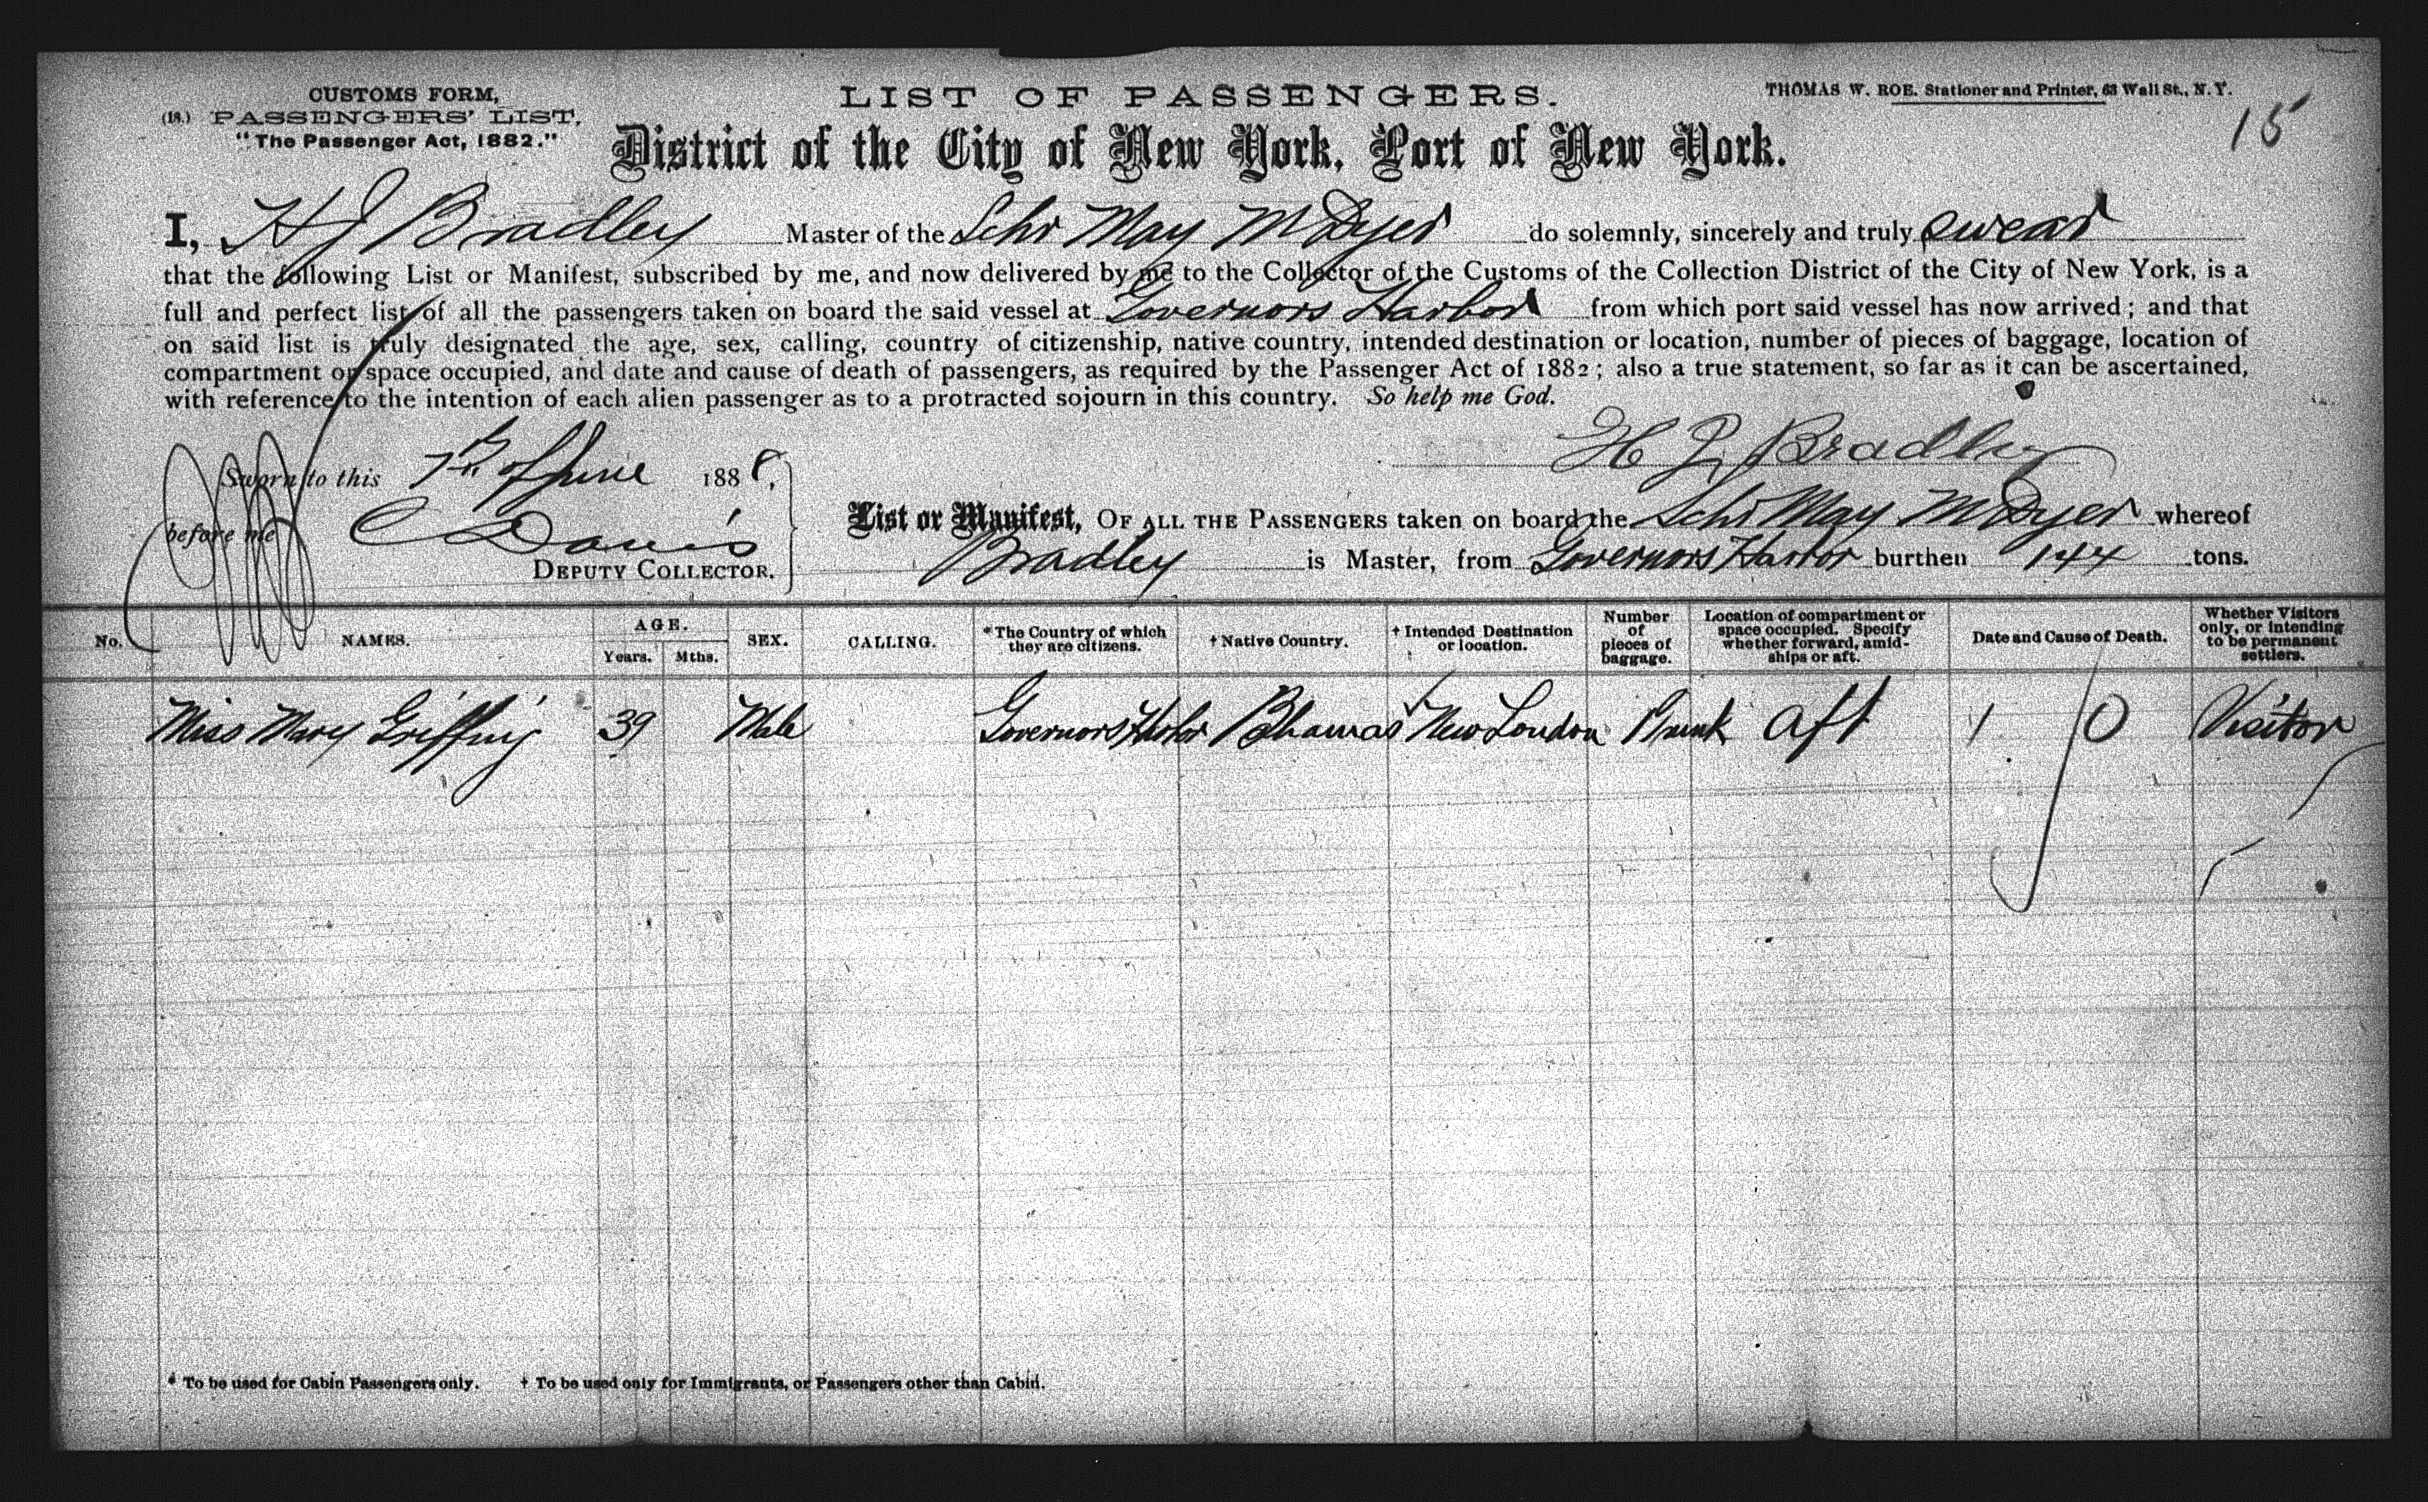 CUSTOMS FORM,
(18.) PASSENGERS' LIST,
"The Passenger Act, 1882."
LIST OF PASSENGERS.
THOMAS W. ROE. Stationer and Printer, 63 Wall St., N. Y.
15
District of the City of New York, Port of New York.
I, H J Bradley Master of the Schr May M Dyer do solemnly, sincerely and truly swear
that the following List or Manifest, subscribed by me, and now delivered by me to the Collector of the Customs of the Collection District of the City of New York, is a
full and perfect list of all the passengers taken on board the said vessel at Governors Harbor from which port said vessel has now arrived; and that
on said list is truly designated the age, sex, calling, country of citizenship, native country, intended destination or location, number of pieces of baggage, location of
compartment or space occupied, and date and cause of death of passengers, as required by the Passenger Act of 1882; also a true statement, so far as it can be ascertained,
with reference to the intention of each alien passenger as to a protracted sojourn in this country. So help me God.
H J Bradley
Sworn to this 7th of June 1888,
before me C Davis
DEPUTY COLLECTOR.
List or Manifest, OF ALL THE PASSENGERS taken on board the Schr May M Dyer whereof
Bradley is Master, from Governors Harbor burthen 144 tons.
No.
NAMES.
AGE.
Years. Mths.
SEX.
CALLING.
*The Country of which
they are citizens.
† Native Country.
† Intended Destination
or location.
Number
of
pieces of
baggage.
Location of compartment or
space occupied. Specify
whether forward, amid-
ships or aft.
Date and Cause of Death.
Whether Visitors
only, or intending
to be permanent
settlers.
Miss Mary 39 Male Governors Harbor Bhamas New London Trunk aft 1 0 Visitor
* To be used for Cabin Passengers only. † To be used only for Immigrants, or Passengers other than Cabin.